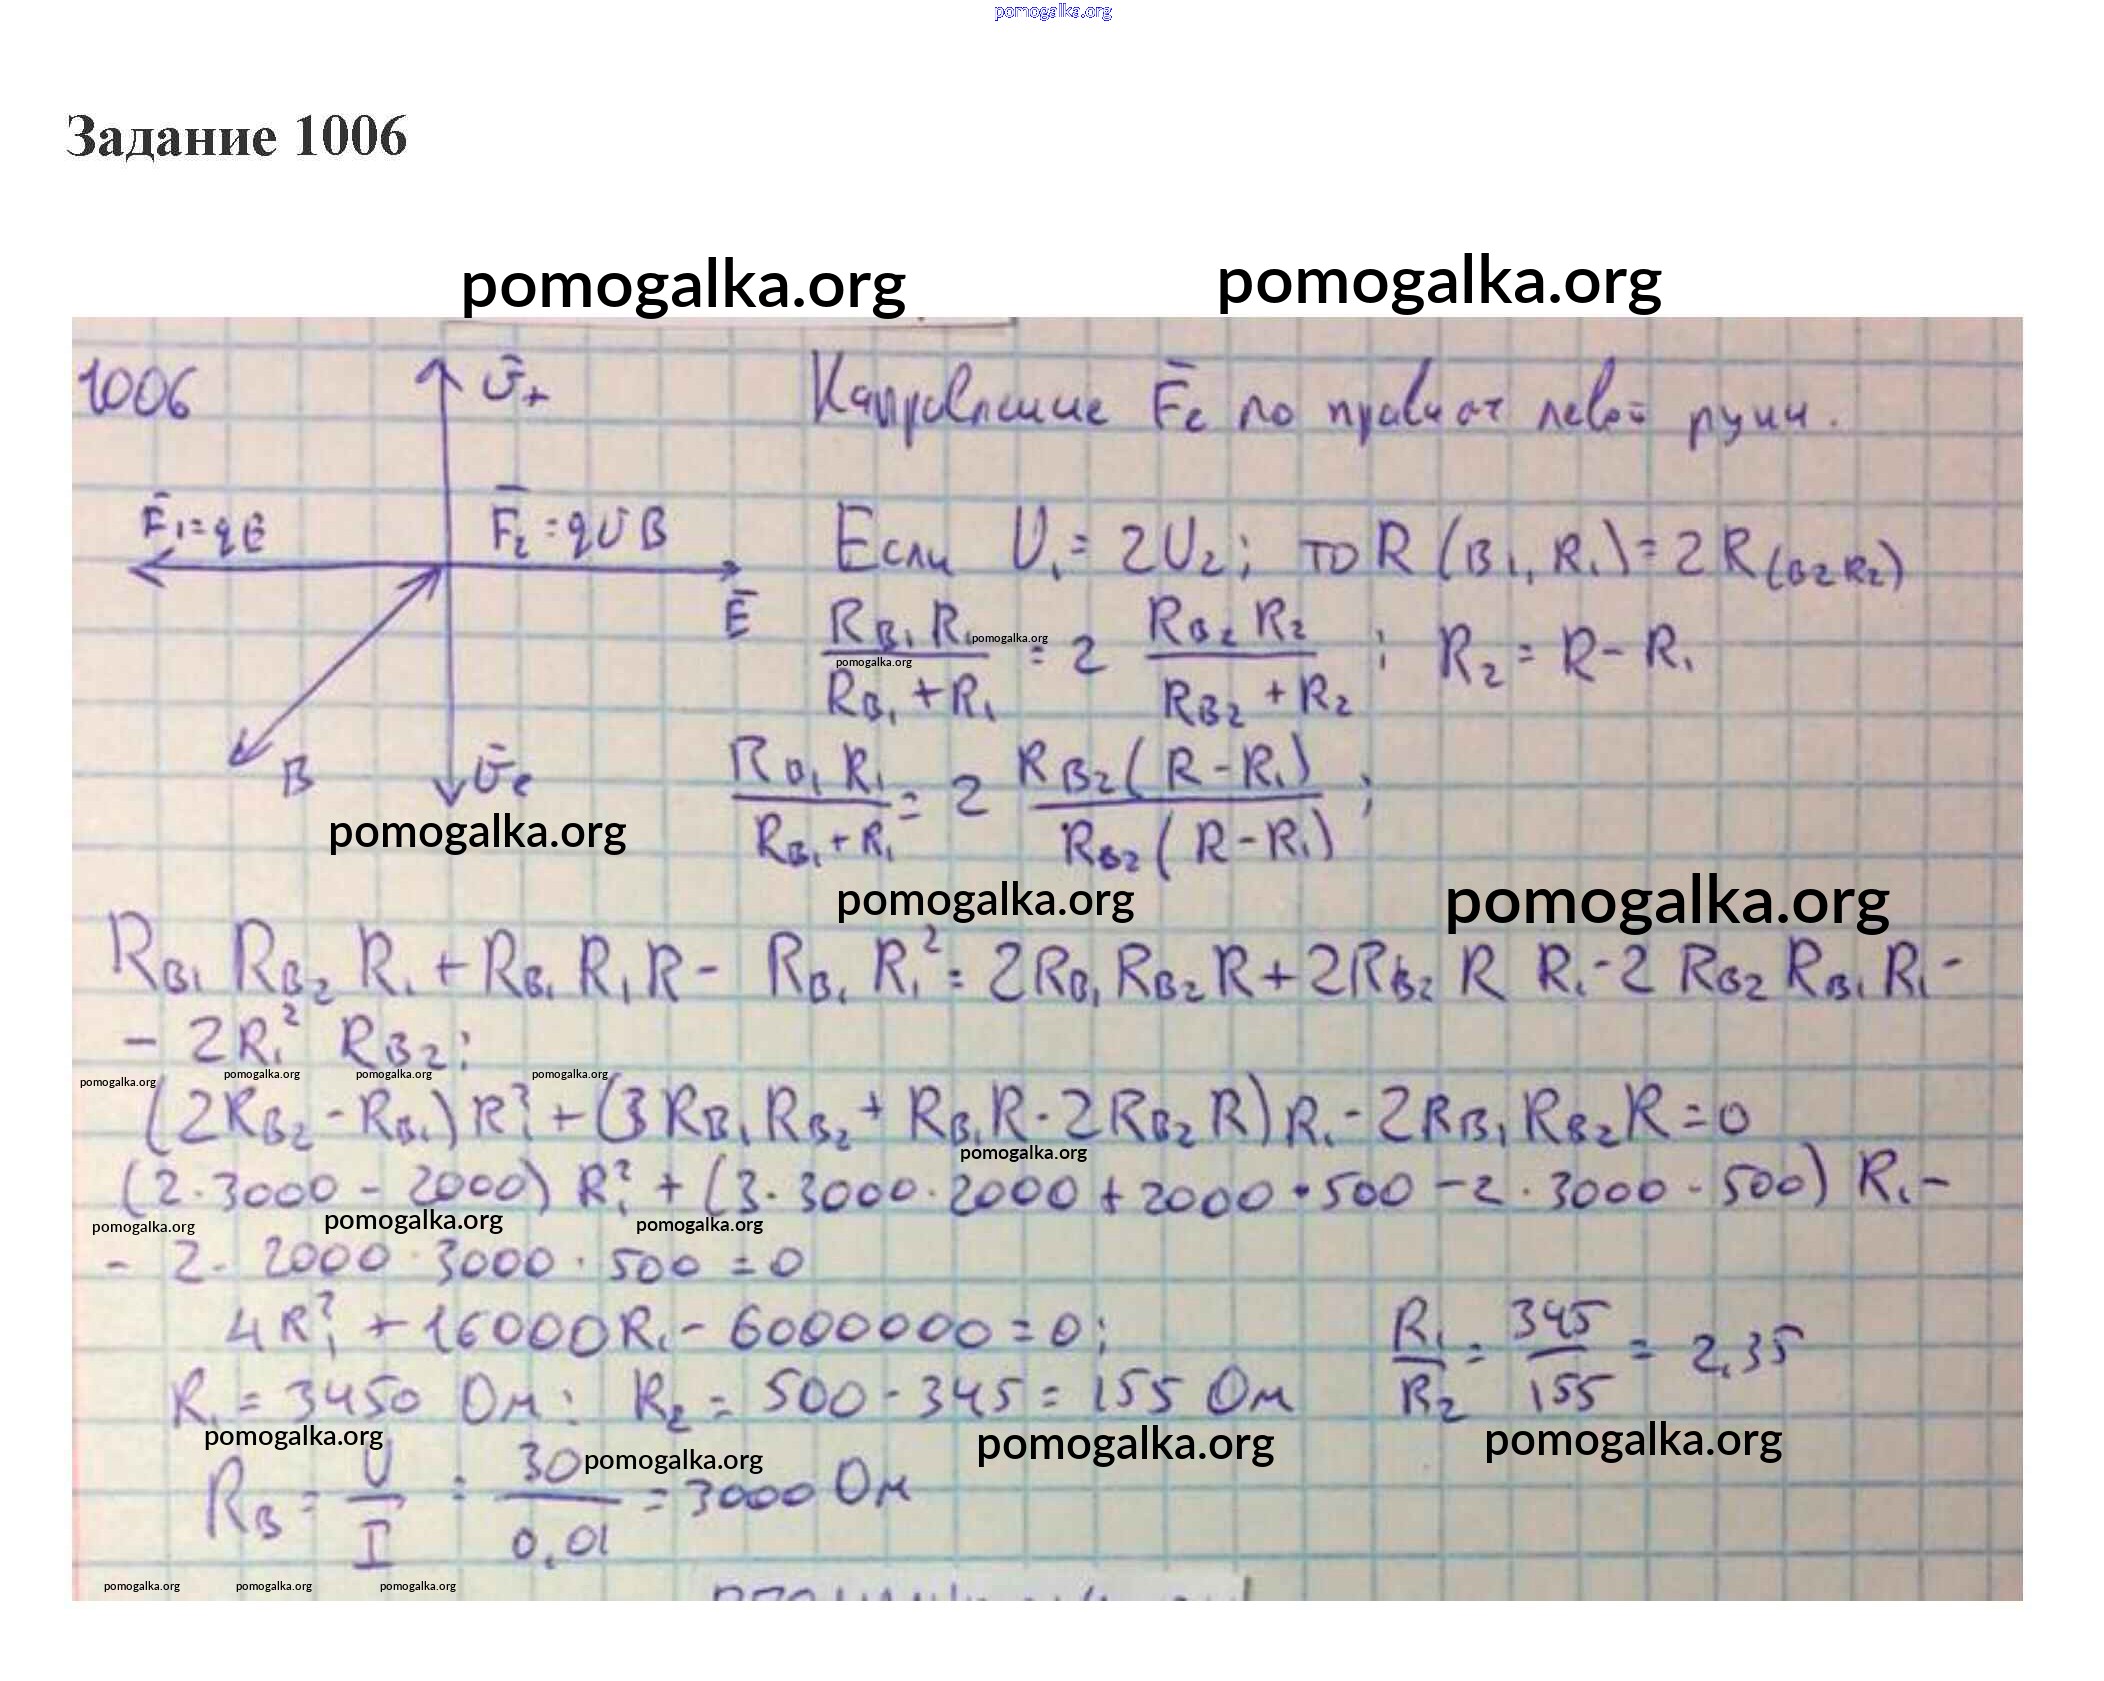 pomogalka.org
Задание 1006
pomogalka.org pomogalka.org
1006 Ῡ₊ Направление F̄е по правилу левой руки.
F̄₁=qE F̄₂=qυB Если U₁=2U₂; то R(B₁,R₁)=2R(B₂R₂)
Ē
RB₁R₁/(RB₁+R₁) = 2 RB₂R₂/(RB₂+R₂); R₂=R-R₁
pomogalka.org
pomogalka.org
B ῡe
RB₁R₁/(RB₁+R₁) = 2 RB₂(R-R₁)/RB₂(R-R₁);
pomogalka.org
pomogalka.org pomogalka.org
RB₁RB₂R₁+RB₁R₁R-RB₁R₁²=2RB₁RB₂R+2RB₂RR₁-2RB₂RB₁R₁-
-2R₁²RB₂;
pomogalka.org pomogalka.org pomogalka.org pomogalka.org
(2RB₂-RB₁)R₁²+(3RB₁RB₂+RB₁R-2RB₂R)R₁-2RB₁RB₂R=0
pomogalka.org
(2·3000-2000)R₁²+(3·3000·2000+2000·500-2·3000·500)R₁-
pomogalka.org pomogalka.org pomogalka.org
-2·2000·3000·500=0
4R₁²+16000R₁-6000000=0; R₁/R₂=345/155=2,35
R₁=3450 Ом; R₂=500-345=155 Ом
pomogalka.org pomogalka.org pomogalka.org pomogalka.org
RB=U/I=30/0,01=3000 Ом
pomogalka.org pomogalka.org pomogalka.org